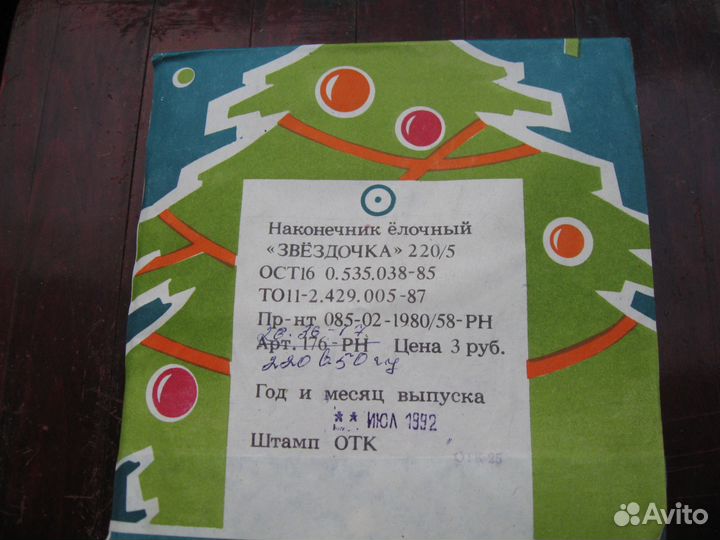 Наконечник ёлочный
«ЗВЁЗДОЧКА» 220/5
ОСТ16 0.535.038-85
ТО11-2.429.005-87
Пр-нт 085-02-1980/58-РН
Арт. 176-РН Цена 3 руб.
220 В 50 гц
Год и месяц выпуска
** ИЮЛ 1992
Штамп ОТК
ОТК-25
Avito